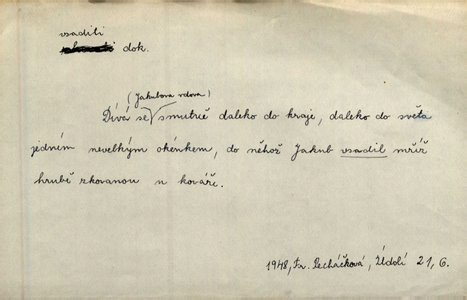 vsadili
dok.
(Jakubova vdova)
Dívá se smutně daleko do kraje, daleko do světa
jedném nevelkým okénkem, do něhož Jakub vsadil mříž
hrubě skovanou u kováře.
1948, Fr. Pecháčková, Údolí 21, 6.